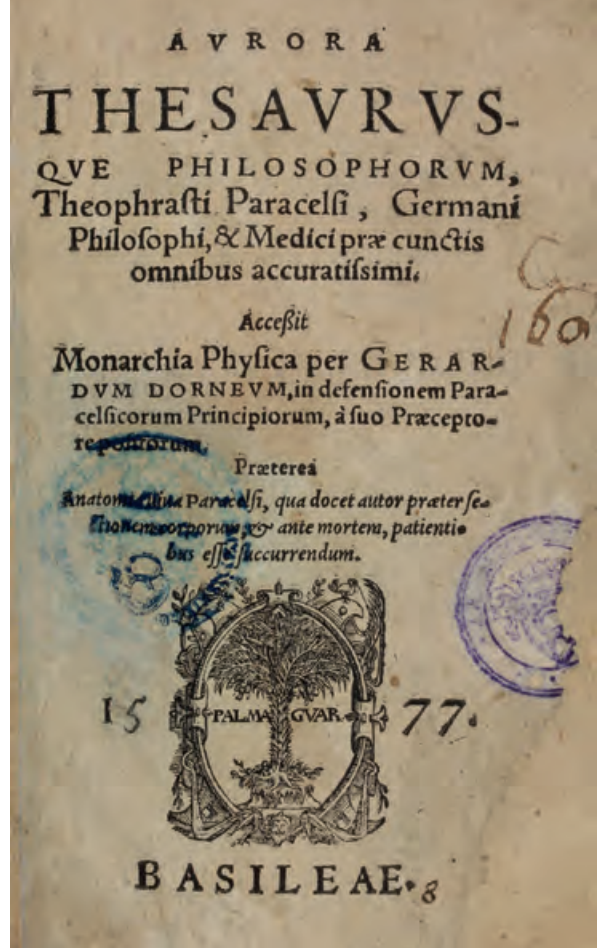 AVRORA
THESAVRVS-
QVE PHILOSOPHORVM,
Theophraſti Paracelſi, Germani
Philoſophi, & Medici præ cunctis
omnibus accuratiſsimi.
Acceßit
Monarchia Phyſica per GERAR-
DVM DORNEVM, in defenſionem Para-
celſicorum Principiorum, à ſuo Præcepto-
re poſitorum.
Præterea
Anatomia uiua Paracelſi, qua docet autor præter ſe-
ctionem corporum, & ante mortem, patienti-
bus eſſe ſuccurrendum.
160
PALMA GVAR.
15 77.
BASILEAE. 8